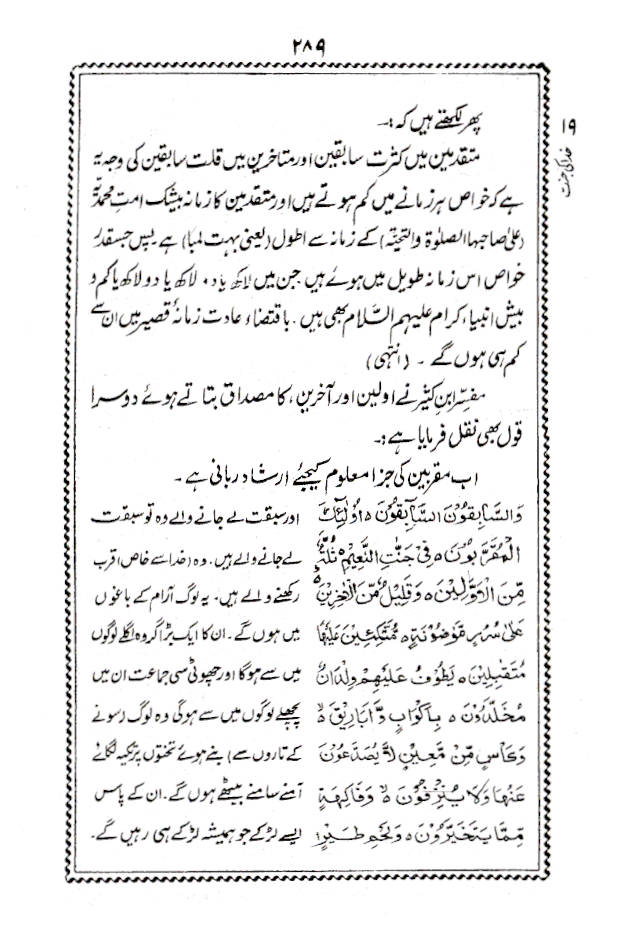 ۲۸۹
۱۹
خدا کی جنت
پھر لکھتے ہیں کہ:۔
متقدمین میں کثرت سابقین اور متاخرین میں قلت سابقین کی وجہ یہ
ہے کہ خواص ہر زمانے میں کم ہوتے ہیں اور متقدمین کا زمانہ بیشک امتِ محمدیہ
(علیٰ صاحبہا الصلوٰۃ والتحیۃ) کے زمانہ سے اطول (یعنی بہت لمبا) ہے پس جسقدر
خواص اس زمانہ طویل میں ہوئے ہیں جن میں لاکھ یا دو لاکھ یا کم و
بیش انبیاء کرام علیہم السّلام بھی ہیں۔ باقتضاء عادت زمانۂ قصیر میں ان سے
کم ہی ہوں گے ۔ (انتہی)
مفسّر ابنِ کثیرؒ نے اولین اور آخرین، کا مصداق بتاتے ہوئے دوسرا
قول بھی نقل فرمایا ہے:۔
اب مقربین کی جزا معلوم کیجئے ارشاد ربانی ہے ۔
وَالسَّابِقُوْنَ السَّابِقُوْنَ ہ اُولٰٓئِكَ اور سبقت لے جانے والے وہ تو سبقت
الْمُقَرَّبُوْنَ ہ فِیْ جَنّٰتِ النَّعِیْمِ ہ ثُلَّۃٌ لے جانے والے ہیں۔ وہ (خدا سے خاص) قرب
مِّنَ الْاَوَّلِیْنَ ہ وَقَلِیْلٌ مِّنَ الْاٰخِرِیْنَ ہ رکھنے والے ہیں۔ یہ لوگ آرام کے باغوں
عَلٰی سُرُرٍ مَّوْضُوْنَۃٍ ہ مُّتَّكِئِیْنَ عَلَیْهَا میں ہوں گے۔ ان کا ایک بڑا گروہ اگلے لوگوں
مُتَقٰبِلِیْنَ ہ یَطُوْفُ عَلَیْهِمْ وِلْدَانٌ میں سے ہوگا اور چھوٹی سی جماعت ان میں
مُّخَلَّدُوْنَ ہ بِاَكْوَابٍ وَّاَبَارِیْقَ ہ پچھلے لوگوں میں سے ہوگی وہ لوگ (سونے
وَكَاْسٍ مِّنْ مَّعِیْنٍ لَّا یُصَدَّعُوْنَ کے تاروں سے) بنے ہوئے تختوں پر تکیہ لگائے
عَنْهَا وَلَا یُنْزِفُوْنَ ہ وَفَاكِهَۃٍ آمنے سامنے بیٹھے ہوں گے۔ ان کے پاس
مِّمَّا یَتَخَیَّرُوْنَ ہ وَلَحْمِ طَیْرٍ ایسے لڑکے جو ہمیشہ لڑکے ہی رہیں گے۔